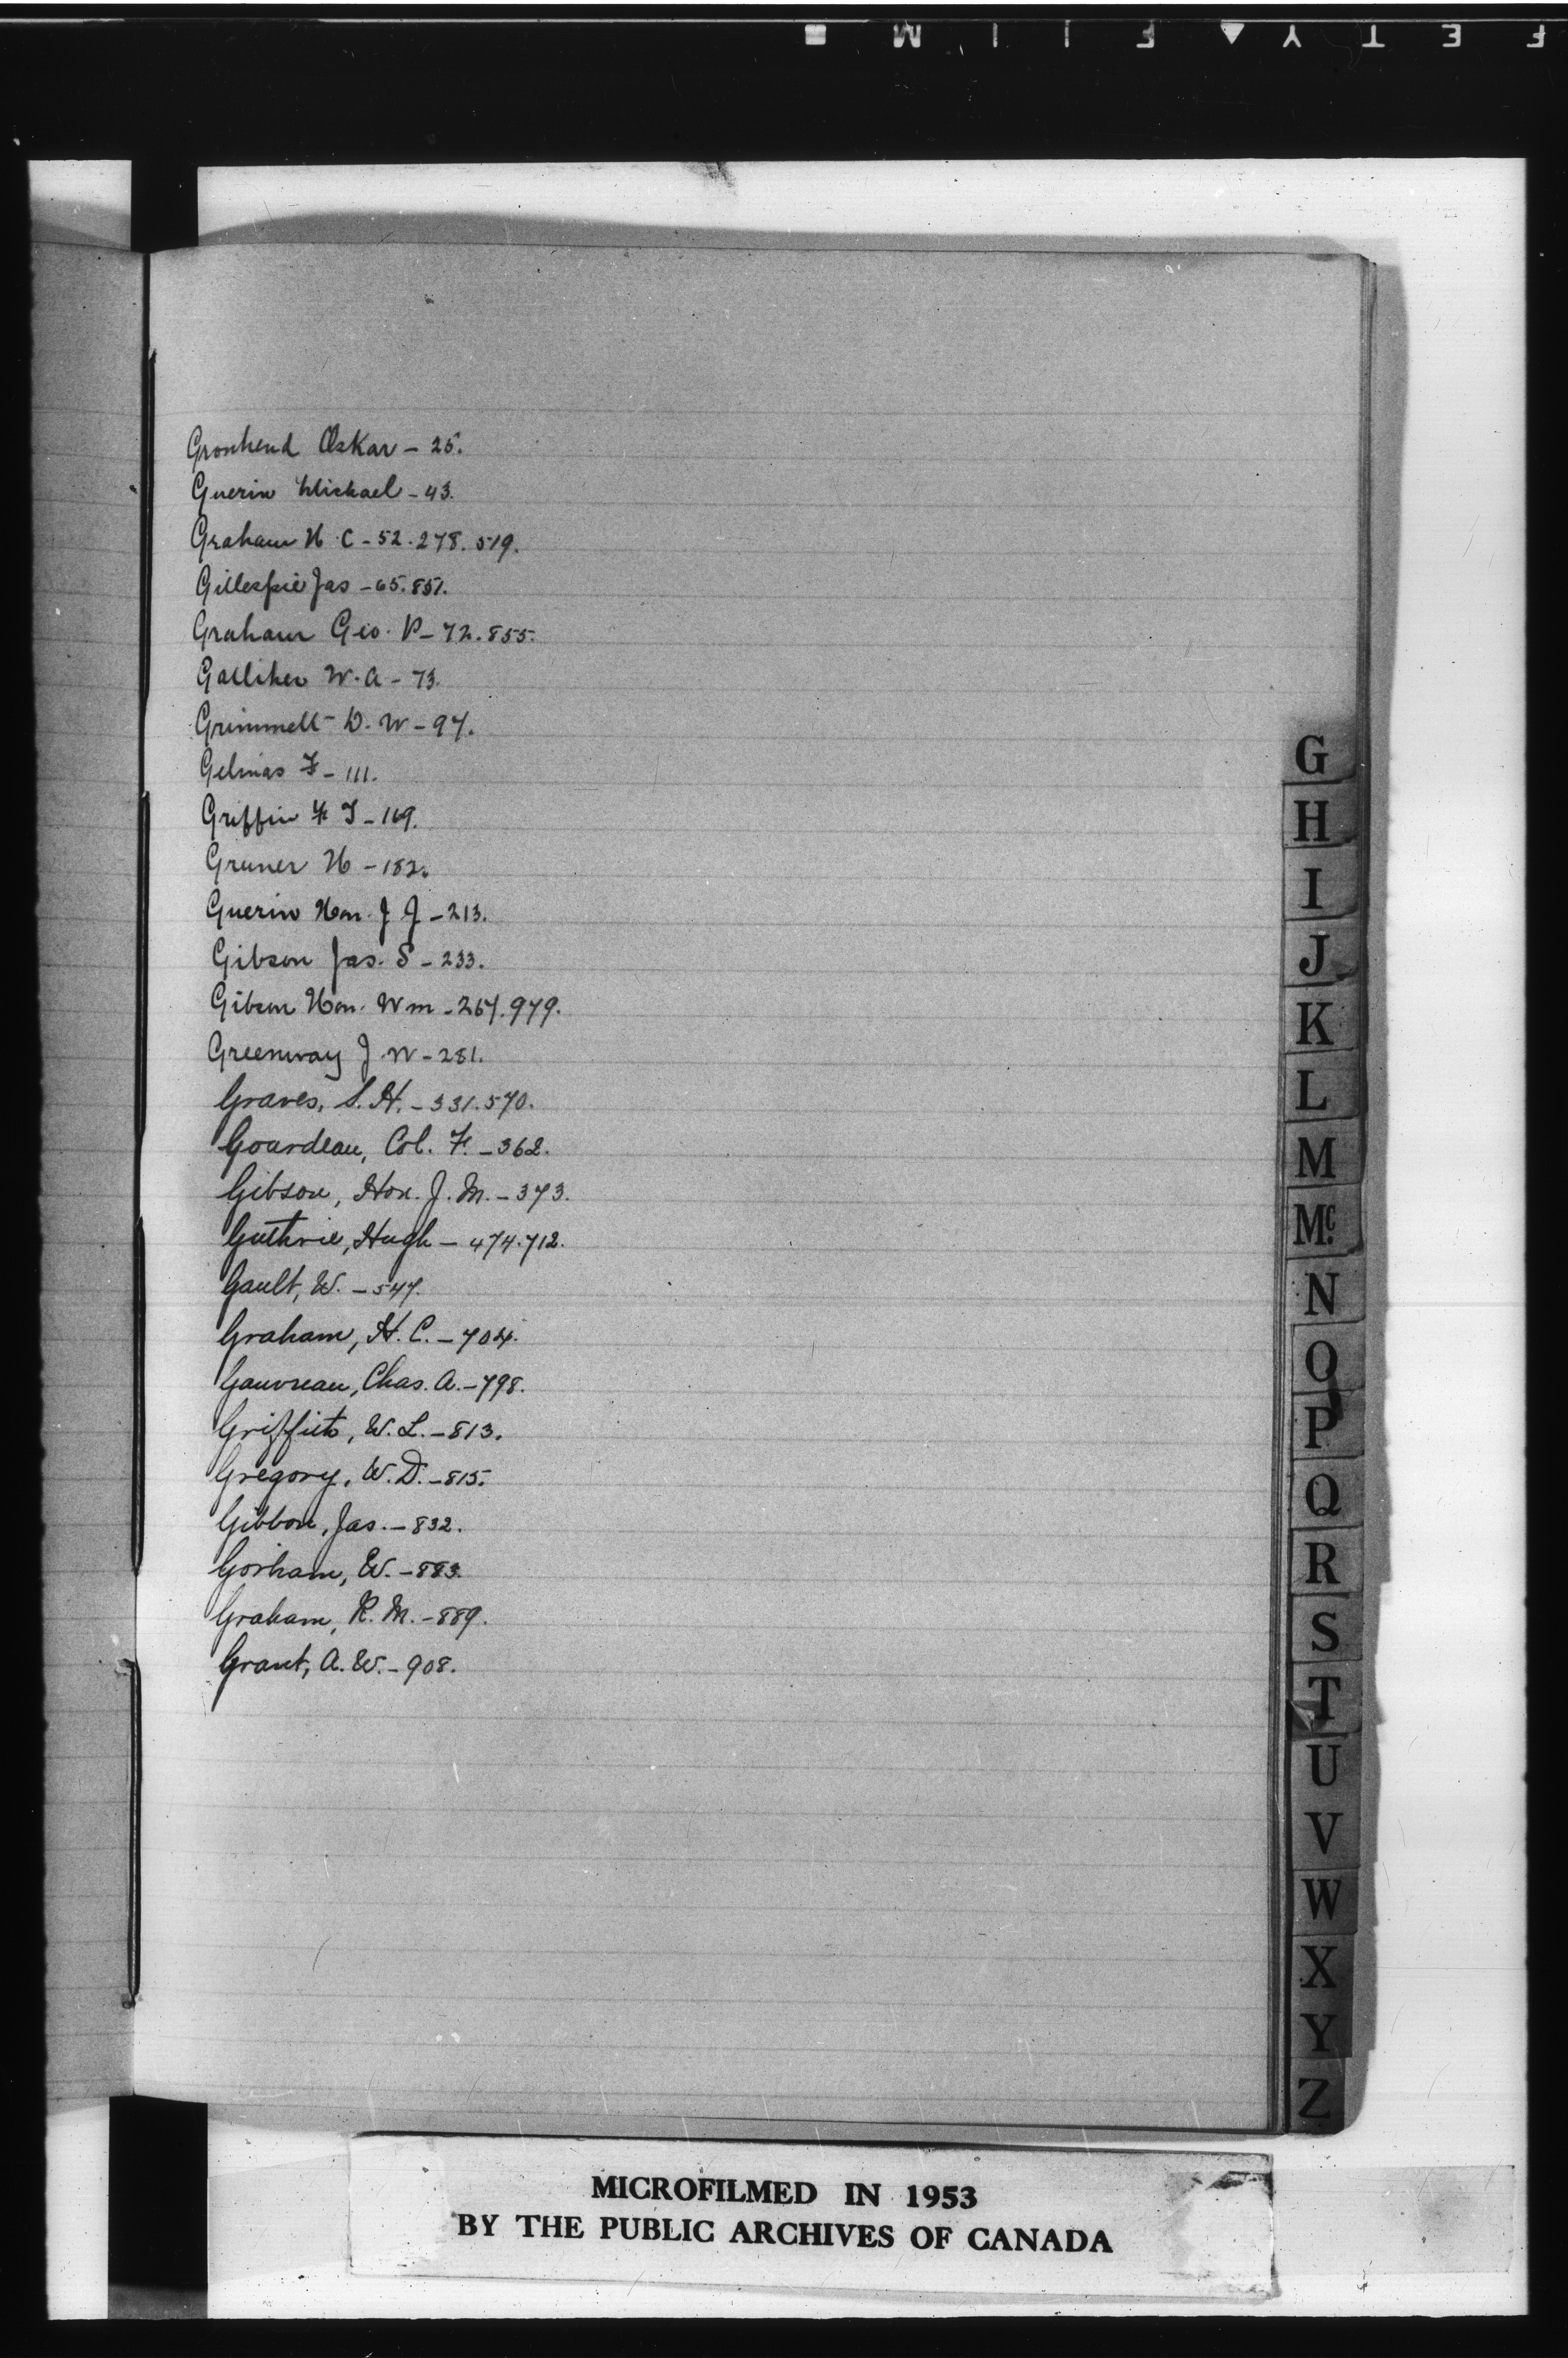 Gronhend Oskar - 25.
Guerin Michael - 43.
Graham H. C - 52. 278. 519.
Gillespie Jas - 65. 851.
Graham Geo. P - 72. 855.
Galliher W. A - 73.
Grimmett D. W - 97.
Gelinas F - 111.
Griffin F T - 169.
Gruner H - 182.
Guerin Hon. J J - 213.
Gibson Jas. S - 233.
Gibson Hon. Wm - 267. 979.
Greenway J. W - 281.
Graves, S. H. - 331. 570.
Gourdeau, Col. F. - 362.
Gibson, Hon. J. M. - 373.
Guthrie, Hugh - 474. 712.
Gault, W. - 547.
Graham, H. C. - 704.
Gauvreau, Chas. A. - 798.
Griffith, W. L. - 813.
Gregory, W. D. - 815.
Gibbon, Jas. - 832.
Gorham, W. - 883.
Graham, R. M. - 889.
Grant, A. W. - 908.
G
H
I
J
K
L
M
Mc.
N
O
P
Q
R
S
T
U
V
W
X
Y
Z
MICROFILMED IN 1953
BY THE PUBLIC ARCHIVES OF CANADA